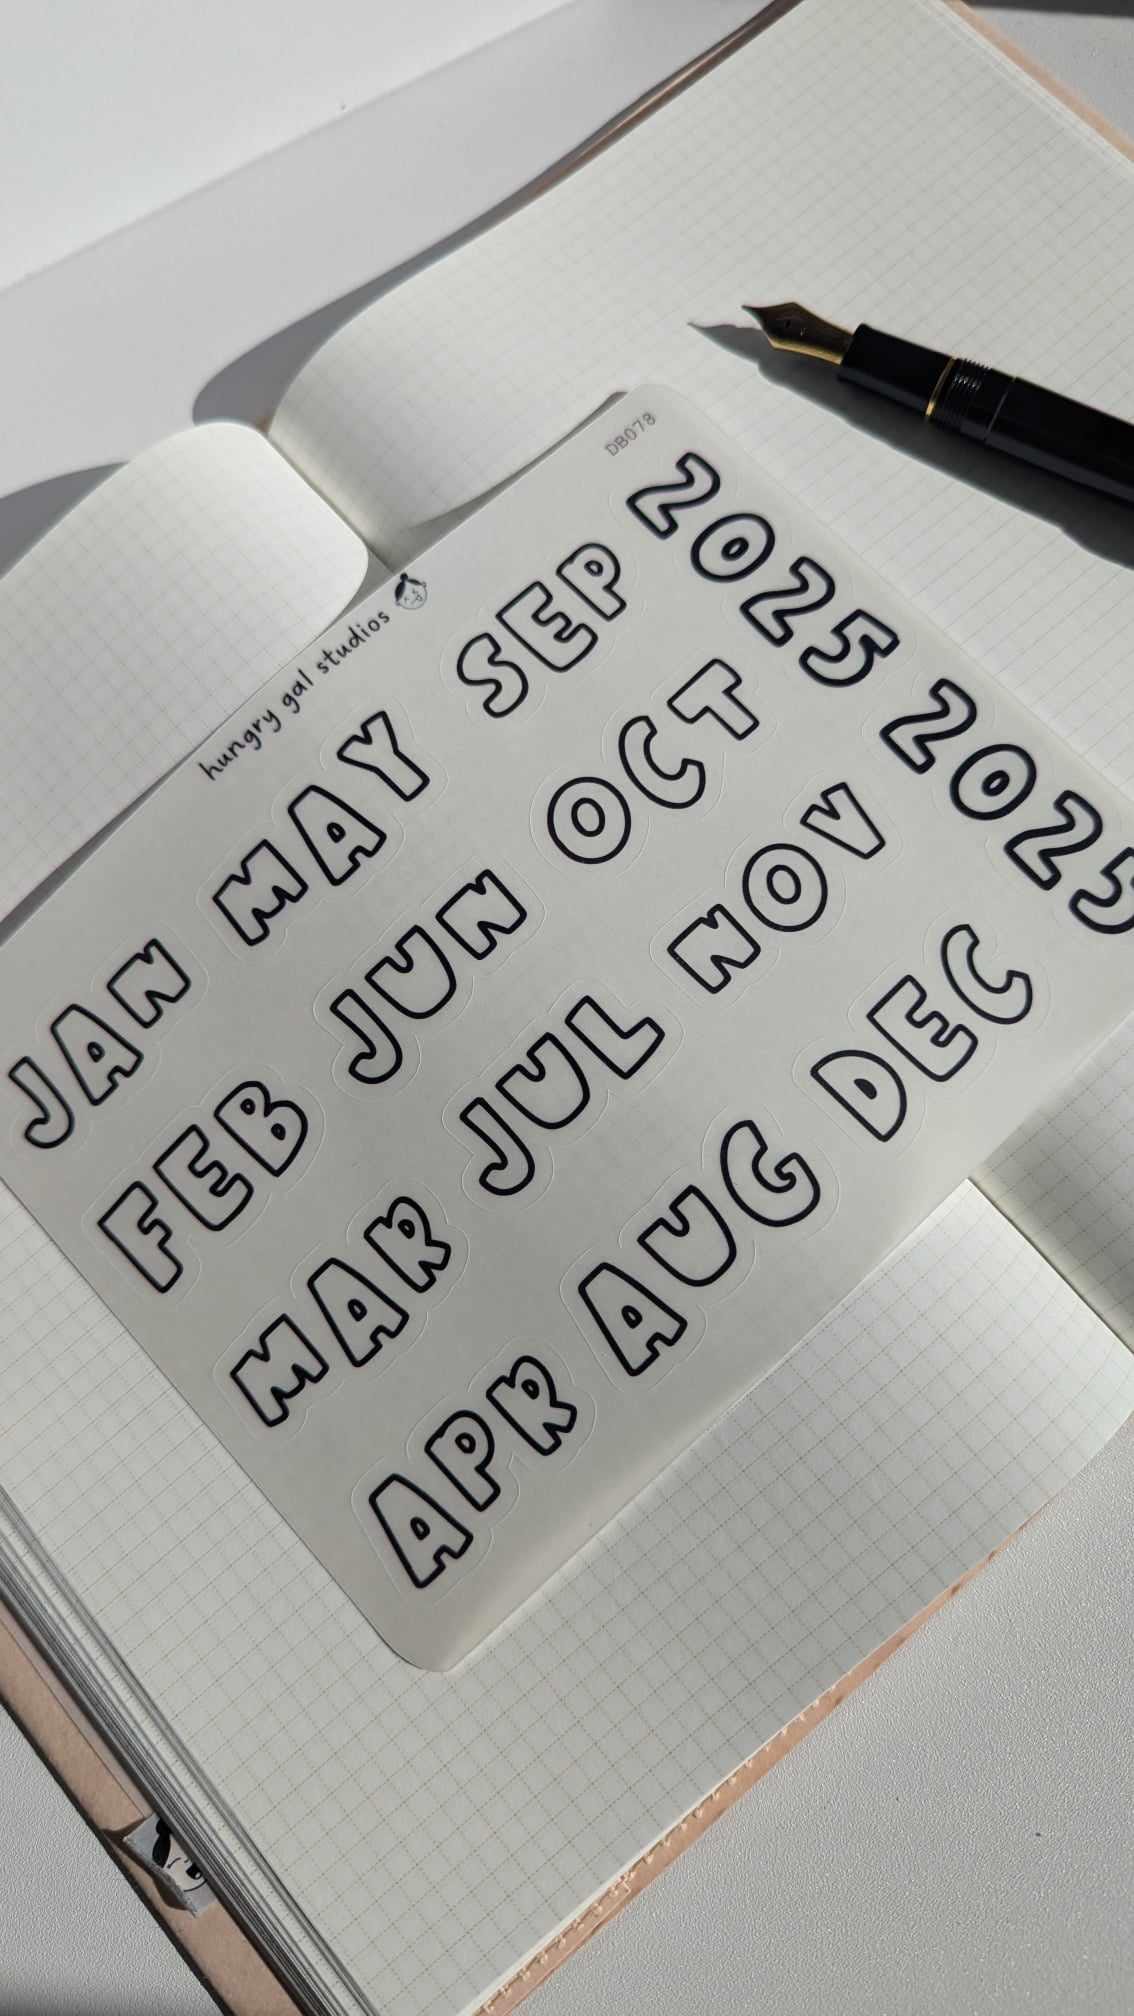 hungry gal studios
DB078
JAN MAY SEP
FEB JUN OCT
MAR JUL NOV
APR AUG DEC
2025 2025